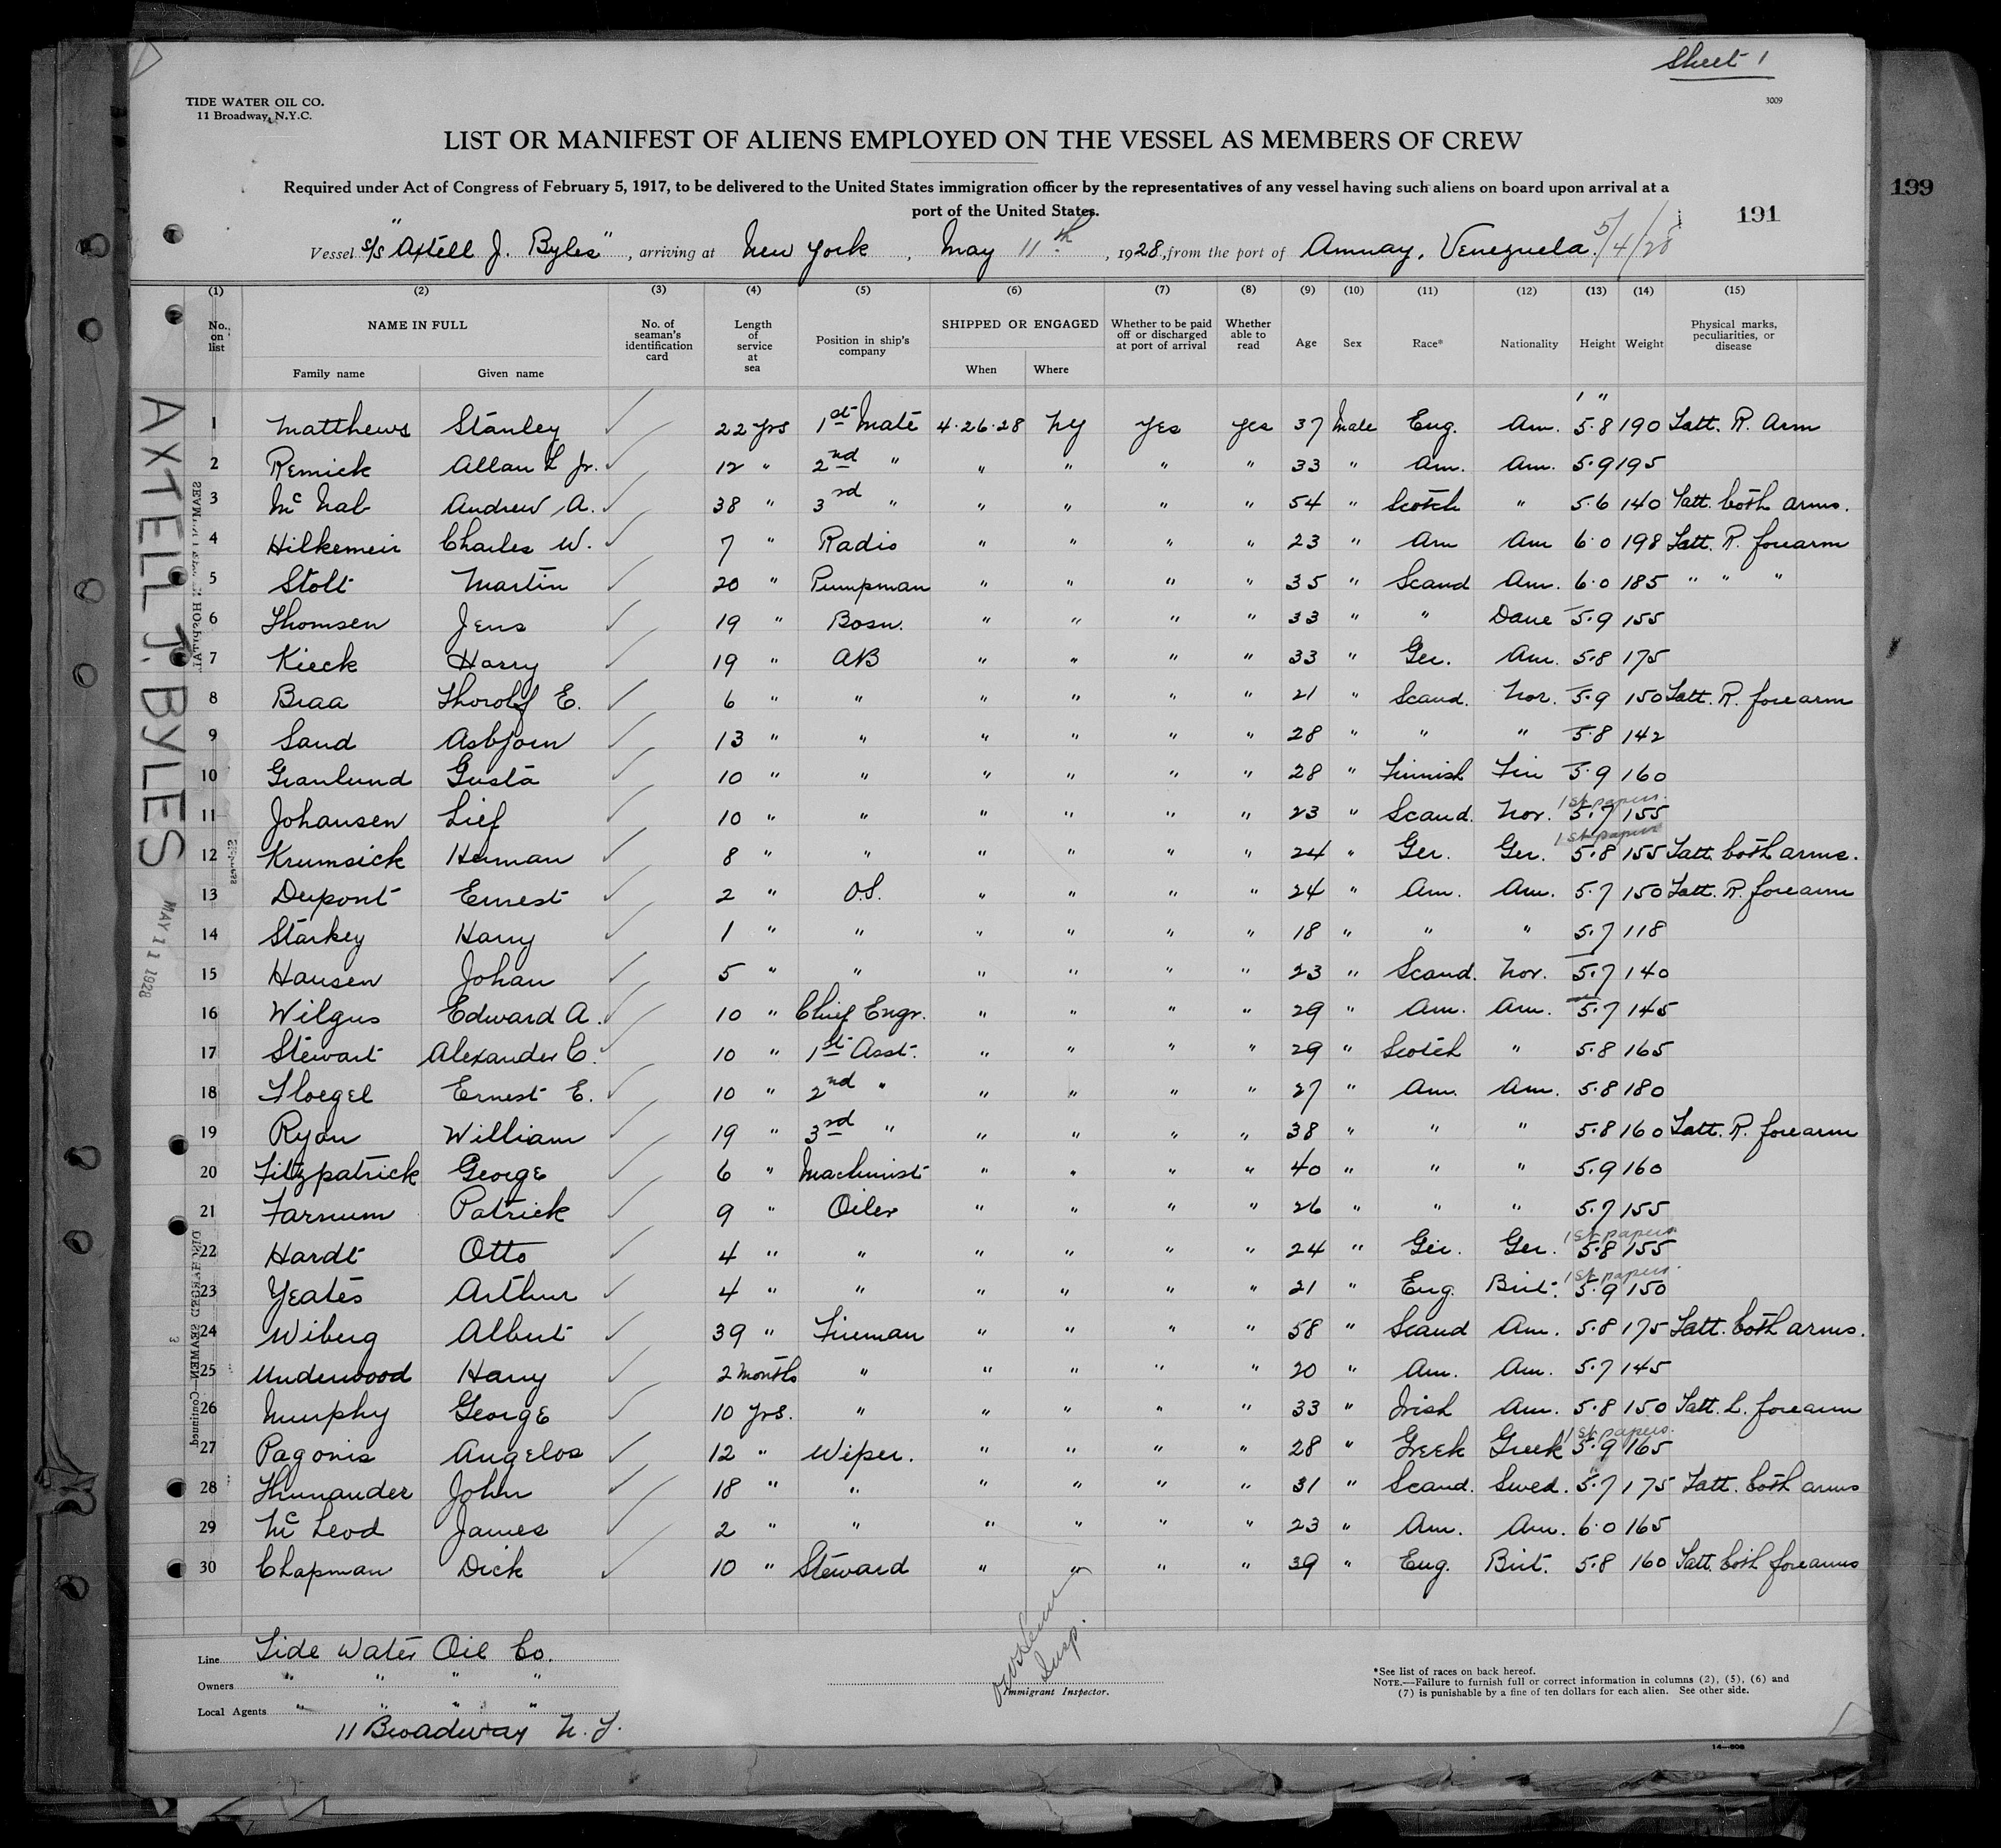 Sheet 1
TIDE WATER OIL CO.
11 Broadway, N.Y.C.
3009
LIST OR MANIFEST OF ALIENS EMPLOYED ON THE VESSEL AS MEMBERS OF CREW
Required under Act of Congress of February 5, 1917, to be delivered to the United States immigration officer by the representatives of any vessel having such aliens on board upon arrival at a
port of the United States.
199
191
Vessel s/s "Axtell J. Byles", arriving at New York, May 11th, 1928, from the port of Amuay, Venezuela. 5/4/28
(1) (2) (3) (4) (5) (6) (7) (8) (9) (10) (11) (12) (13) (14) (15)
No. on list NAME IN FULL Family name Given name No. of seaman's identification card Length of service at sea Position in ship's company SHIPPED OR ENGAGED When Where Whether to be paid off or discharged at port of arrival Whether able to read Age Sex Race* Nationality Height Weight Physical marks, peculiarities, or disease
' "
1 Matthews Stanley ✓ 22 yrs 1st Mate 4·26·28 NY Yes Yes 37 Male Eng. Am. 5·8 190 Tatt. R. Arm
2 Remick Allan L Jr. ✓ 12 " 2nd " " " " " 33 " Am. Am. 5·9 195
3 Mc Nab Andrew A. ✓ 38 " 3rd " " " " " 54 " Scotch " 5·6 140 Tatt. both arms.
4 Hilkemeir Charles W. ✓ 7 " Radio " " " " 23 " Am Am 6·0 198 Tatt. R. forearm
5 Stolt Martin ✓ 20 " Pumpman " " " " 35 " Scand Am. 6·0 185 " " "
6 Thomsen Jens ✓ 19 " Bosn. " " " " 33 " " Dane 5·9 155
7 Kieck Harry ✓ 19 " AB " " " " 33 " Ger. Am. 5·8 175
8 Braa Thorolf E. ✓ 6 " " " " " " 21 " Scand. Nor. 5·9 150 Tatt. R. forearm
9 Sand Asbjorn ✓ 13 " " " " " " 28 " " " 5·8 142
10 Granlund Gusta ✓ 10 " " " " " " 28 " Finnish Fin 5·9 160
1st papers.
11 Johansen Lief ✓ 10 " " " " " " 23 " Scand. Nor. 5·7 155
1st papers
12 Krumsick Herman ✓ 8 " " " " " " 24 " Ger. Ger. 5·8 155 Tatt. both arms.
13 Dupont Ernest ✓ 2 " O.S. " " " " 24 " Am. Am. 5·7 150 Tatt. R. forearm
14 Starkey Harry ✓ 1 " " " " " " 18 " " " 5·7 118
15 Hansen Johan ✓ 5 " " " " " " 23 " Scand. Nor. 5·7 140
16 Wilgus Edward A. ✓ 10 " Chief Engr. " " " " 29 " Am. Am. 5·7 145
17 Stewart Alexander C. ✓ 10 " 1st Asst. " " " " 29 " Scotch " 5·8 165
18 Floegel Ernest E. ✓ 10 " 2nd " " " " " 27 " Am. Am. 5·8 180
19 Ryan William ✓ 19 " 3rd " " " " " 38 " " " 5·8 160 Tatt. R. forearm
20 Fitzpatrick George ✓ 6 " Machinist " " " " 40 " " " 5·9 160
21 Farnum Patrick ✓ 9 " Oiler " " " " 26 " " " 5·7 155
1st papers
22 Hardt Otto ✓ 4 " " " " " " 24 " Ger. Ger. 5·8 155
1st papers.
23 Yeates Arthur ✓ 4 " " " " " " 21 " Eng. Brit. 5·9 150
24 Wiberg Albert ✓ 39 " Fireman " " " " 58 " Scand Am. 5·8 175 Tatt. both arms.
25 Underwood Harry ✓ 2 months " " " " " 20 " Am. Am. 5·7 145
26 Murphy George ✓ 10 yrs. " " " " " 33 " Irish Am. 5·8 150 Tatt. L. forearm
1st papers.
27 Pagonis Angelos ✓ 12 " Wiper. " " " " 28 " Greek Greek 5·9 165
28 Thunander John ✓ 18 " " " " " " 31 " Scand. Swed. 5·7 175 Tatt. both arms
29 Mc Leod James ✓ 2 " " " " " " 23 " Am. Am. 6·0 165
30 Chapman Dick ✓ 10 " Steward " " " " 39 " Eng. Brit. 5·8 160 Tatt. both forearms
AXTELL J. BYLES
MAY 11 1928
Line Tide Water Oil Co.
Owners " " " "
Local Agents " " " "
11 Broadway N.Y.
Insp.
Immigrant Inspector.
*See list of races on back hereof.
NOTE.—Failure to furnish full or correct information in columns (2), (5), (6) and
(7) is punishable by a fine of ten dollars for each alien. See other side.